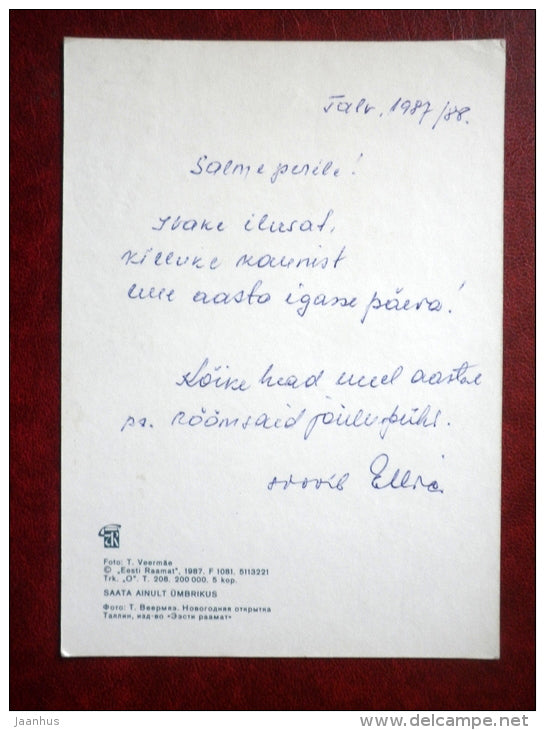 Talv. 1987/88.
Salme perele!
Ivake ilusat,
killuke kaunist
uue aasta igasse päeva!
Kõike head uuel aastal
ps. Rõõmsaid jõulupühi.
soovib
TR
Foto: T. Veermäe
© „Eesti Raamat", 1987. F 1081. 5113221
Trk. „O". T. 206. 200 000. 5 kop.
SAATA AINULT ÜMBRIKUS
Фото: Т. Веермяэ. Новогодняя открытка
Таллин, изд-во «Ээсти раамат»
jaanhus
www.delcampe.net